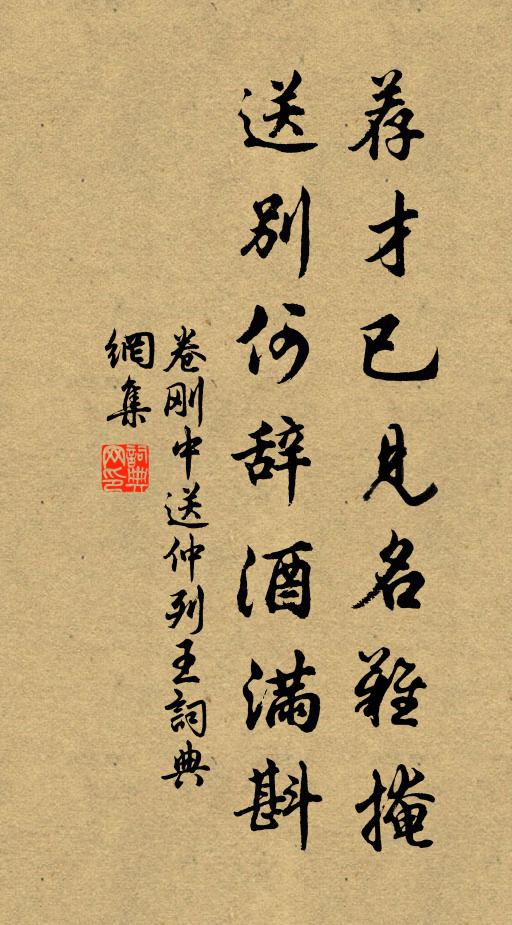 荐才已见名难掩
送别何辞酒满斟
卷刚中送仲列王詞典
網集
詞典
网印